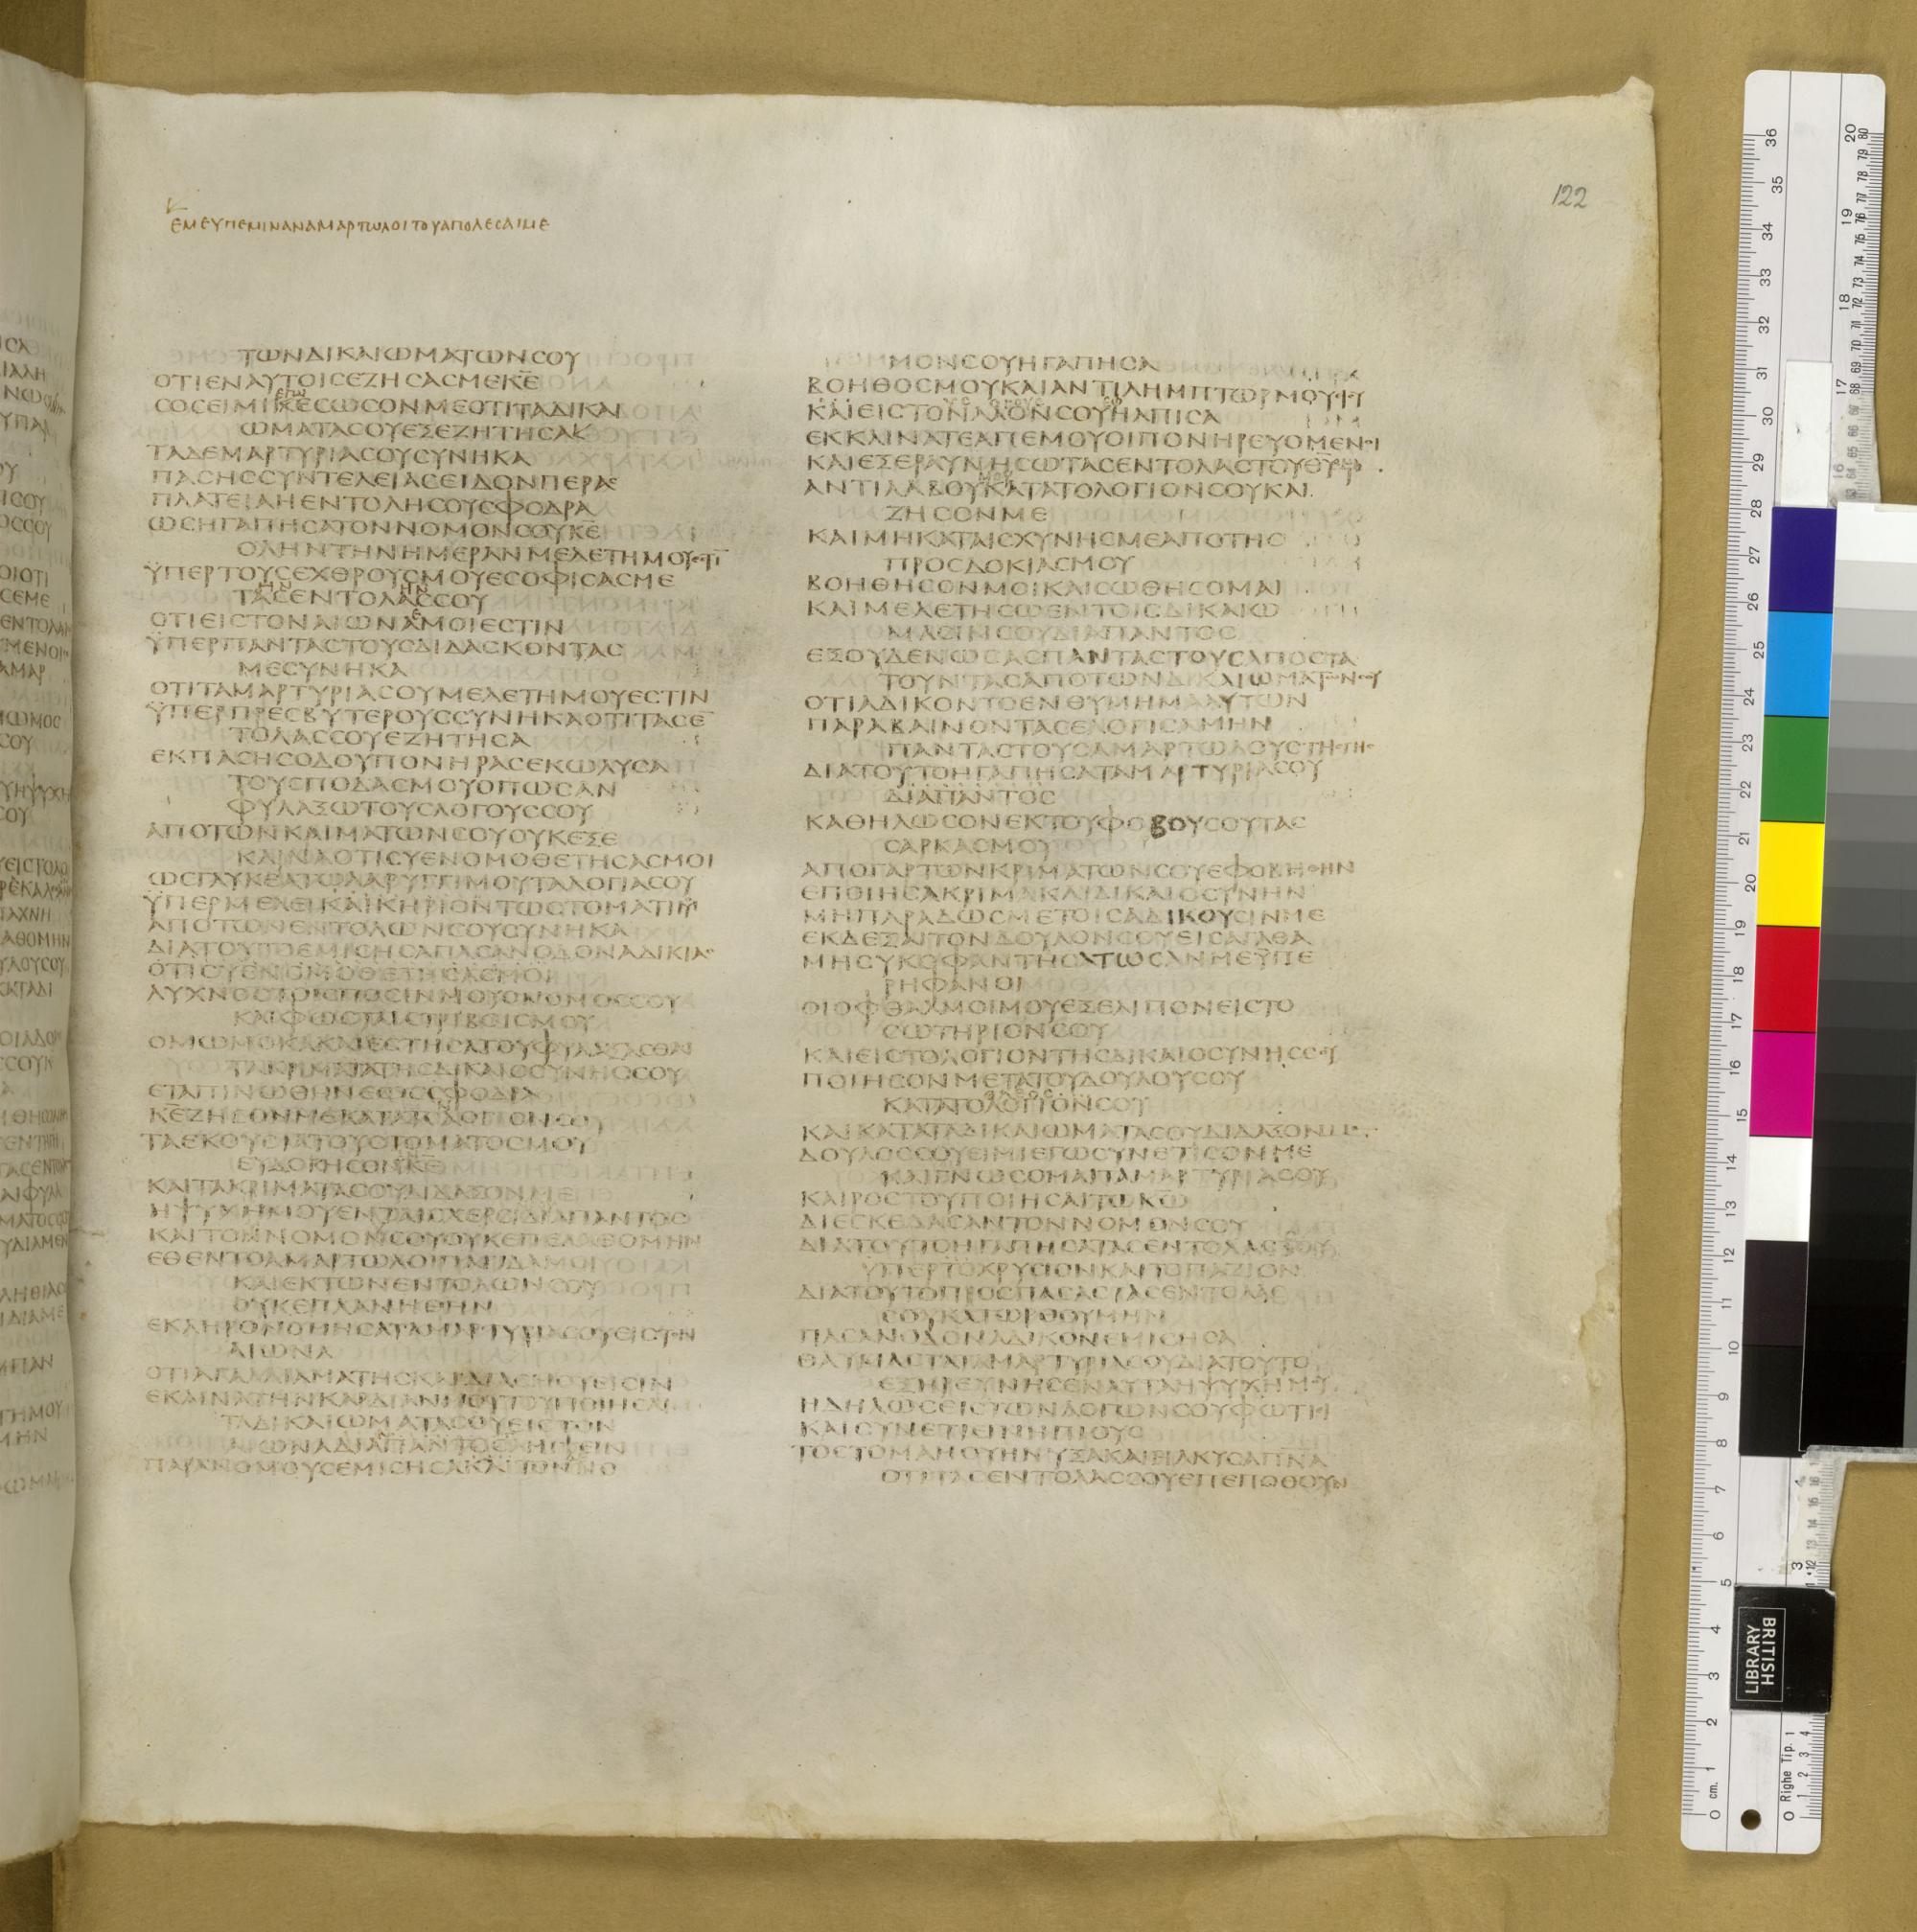 122
ΕΜΕ ΥΠΕΜΙΝΑΝ ΑΜΑΡΤΩΛΟΙ ΤΟΥ ΑΠΟΛΕCΑΙ ΜΕ
ΤΩΝ ΔΙΚΑΙΩΜΑΤΩΝ CΟΥ
ΟΤΙ ΕΝ ΑΥΤΟΙC ΕΖΗCΑC ΜΕ Κ̅Ε̅
CΟC ΕΙΜΙ ΕΓΩ CΩCΟΝ ΜΕ ΟΤΙ ΤΑ ΔΙΚΑΙ
ΩΜΑΤΑ CΟΥ ΕΞΕΖΗΤΗCΑ
ΤΑ ΔΕ ΜΑΡΤΥΡΙΑ CΟΥ CΥΝΗΚΑ
ΠΑCΗC CΥΝΤΕΛΕΙΑC ΕΙΔΟΝ ΠΕΡΑC
ΠΛΑΤΕΙΑ Η ΕΝΤΟΛΗ CΟΥ CΦΟΔΡΑ
ΩC ΗΓΑΠΗCΑ ΤΟΝ ΝΟΜΟΝ CΟΥ Κ̅Ε̅
ΟΛΗΝ ΤΗΝ ΗΜΕΡΑΝ ΜΕΛΕΤΗ ΜΟΥ ΕCΤΙ
ΫΠΕΡ ΤΟΥC ΕΧΘΡΟΥC ΜΟΥ ΕCΟΦΙCΑC ΜΕ
ΤΑC ΕΝΤΟΛΑC CΟΥ
ΟΤΙ ΕΙC ΤΟΝ ΑΙΩΝΑ ΕΜΟΙ ΕCΤΙΝ
ΫΠΕΡ ΠΑΝΤΑC ΤΟΥC ΔΙΔΑCΚΟΝΤΑC
ΜΕ CΥΝΗΚΑ
ΟΤΙ ΤΑ ΜΑΡΤΥΡΙΑ CΟΥ ΜΕΛΕΤΗ ΜΟΥ ΕCΤΙΝ
ΫΠΕΡ ΠΡΕCΒΥΤΕΡΟΥC CΥΝΗΚΑ ΟΤΙ ΤΑC Ε̅
ΤΟΛΑC CΟΥ ΕΖΗΤΗCΑ
ΕΚ ΠΑCΗC ΟΔΟΥ ΠΟΝΗΡΑC ΕΚΩΛΥCΑ
ΤΟΥC ΠΟΔΑC ΜΟΥ ΟΠΩC ΑΝ
ΦΥΛΑΞΩ ΤΟΥC ΛΟΓΟΥC CΟΥ
ΑΠΟ ΤΩΝ ΚΡΙΜΑΤΩΝ CΟΥ ΟΥΚ ΕΞΕ
ΚΛΙΝΑ ΟΤΙ CΥ ΕΝΟΜΟΘΕΤΗCΑC ΜΟΙ
ΩC ΓΛΥΚΕΑ ΤΩ ΛΑΡΥΓΓΙ ΜΟΥ ΤΑ ΛΟΓΙΑ CΟΥ
ΫΠΕΡ ΜΕΛΙ ΚΑΙ ΚΗΡΙΟΝ ΤΩ CΤΟΜΑΤΙ
ΑΠΟ ΤΩΝ ΕΝΤΟΛΩΝ CΟΥ CΥΝΗΚΑ
ΔΙΑ ΤΟΥΤΟ ΕΜΙCΗCΑ ΠΑCΑΝ ΟΔΟΝ ΑΔΙΚΙΑC
ΟΤΙ CΥ ΕΝΟΜΟΘΕΤΗCΑC ΜΟΙ
ΛΥΧΝΟC ΤΟΙC ΠΟCΙΝ ΜΟΥ Ο ΝΟΜΟC CΟΥ
ΚΑΙ ΦΩC ΤΑΙC ΤΡΙΒΟΙC ΜΟΥ
ΟΜΩΜΟΚΑ ΚΑΙ ΕCΤΗCΑ ΤΟΥ ΦΥΛΑΞΑCΘΑΙ
ΤΑ ΚΡΙΜΑΤΑ ΤΗC ΔΙΚΑΙΟCΥΝΗC CΟΥ
ΕΤΑΠΙΝΩΘΗΝ ΕΩC CΦΟΔΡΑ
Κ̅Ε̅ ΖΗCΟΝ ΜΕ ΚΑΤΑ ΤΟ ΛΟΓΙΟΝ CΟΥ
ΤΑ ΕΚΟΥCΙΑ ΤΟΥ CΤΟΜΑΤΟC ΜΟΥ
ΕΥΔΟΚΗCΟΝ Κ̅Ε̅
ΚΑΙ ΤΑ ΚΡΙΜΑΤΑ CΟΥ ΔΙΔΑΞΟΝ ΜΕ
Η ΨΥΧΗ ΜΟΥ ΕΝ ΤΑΙC ΧΕΡCΙ ΔΙΑΠΑΝΤΟC
ΚΑΙ ΤΟΝ ΝΟΜΟΝ CΟΥ ΟΥΚ ΕΠΕΛΑΘΟΜΗΝ
ΕΘΕΝΤΟ ΑΜΑΡΤΩΛΟΙ ΠΑΓΙΔΑ ΜΟΙ
ΚΑΙ ΕΚ ΤΩΝ ΕΝΤΟΛΩΝ CΟΥ
ΟΥΚ ΕΠΛΑΝΗΘΗΝ
ΕΚΛΗΡΟΝΟΜΗCΑ ΤΑ ΜΑΡΤΥΡΙΑ CΟΥ ΕΙC ΤΟΝ
ΑΙΩΝΑ
ΟΤΙ ΑΓΑΛΛΙΑΜΑ ΤΗC ΚΑΡΔΙΑC ΜΟΥ ΕΙCΙΝ
ΕΚΛΙΝΑ ΤΗΝ ΚΑΡΔΙΑΝ ΜΟΥ ΤΟΥ ΠΟΙΗCΑΙ
ΤΑ ΔΙΚΑΙΩΜΑΤΑ CΟΥ ΕΙC ΤΟΝ
ΑΙΩΝΑ
ΠΑΡΑΝΟΜΟΥC ΕΜΙCΗCΑ ΚΑΙ ΤΟΝ ΝΟ
ΜΟΝ CΟΥ ΗΓΑΠΗCΑ
ΒΟΗΘΟC ΜΟΥ ΚΑΙ ΑΝΤΙΛΗΜΠΤΩΡ ΜΟΥ
ΚΑΙ ΕΙC ΤΟΝ ΛΑΟΝ CΟΥ ΗΛΠΙCΑ
ΕΚΚΛΙΝΑΤΕ ΑΠ ΕΜΟΥ ΟΙ ΠΟΝΗΡΕΥΟΜΕΝΟΙ
ΚΑΙ ΕΞΕΡΑΥΝΗCΩ ΤΑC ΕΝΤΟΛΑC ΤΟΥ Θ̅Υ̅
ΑΝΤΙΛΑΒΟΥ ΚΑΤΑ ΤΟ ΛΟΓΙΟΝ CΟΥ ΚΑΙ
ΖΗCΟΝ ΜΕ
ΚΑΙ ΜΗ ΚΑΤΑΙCΧΥΝΗC ΜΕ ΑΠΟ ΤΗC
ΠΡΟCΔΟΚΙΑC ΜΟΥ
ΒΟΗΘΗCΟΝ ΜΟΙ ΚΑΙ CΩΘΗCΟΜΑΙ
ΚΑΙ ΜΕΛΕΤΗCΩ ΕΝ ΤΟΙC ΔΙΚΑΙΩ
ΜΑCΙΝ CΟΥ ΔΙΑΠΑΝΤΟC
ΕΞΟΥΔΕΝΩCΑC ΠΑΝΤΑC ΤΟΥC ΑΠΟCΤΑ
ΤΟΥΝΤΑC ΑΠΟ ΤΩΝ ΔΙΚΑΙΩΜΑΤΩΝ CΟΥ
ΟΤΙ ΑΔΙΚΟΝ ΤΟ ΕΝΘΥΜΗΜΑ ΑΥΤΩΝ
ΠΑΡΑΒΑΙΝΟΝΤΑC ΕΛΟΓΙCΑΜΗΝ
ΠΑΝΤΑC ΤΟΥC ΑΜΑΡΤΩΛΟΥC ΤΗC ΓΗC
ΔΙΑ ΤΟΥΤΟ ΗΓΑΠΗCΑ ΤΑ ΜΑΡΤΥΡΙΑ CΟΥ
ΔΙΑΠΑΝΤΟC
ΚΑΘΗΛΩCΟΝ ΕΚ ΤΟΥ ΦΟΒΟΥ CΟΥ ΤΑC
CΑΡΚΑC ΜΟΥ
ΑΠΟ ΓΑΡ ΤΩΝ ΚΡΙΜΑΤΩΝ CΟΥ ΕΦΟΒΗΘΗΝ
ΕΠΟΙΗCΑ ΚΡΙΜΑ ΚΑΙ ΔΙΚΑΙΟCΥΝΗΝ
ΜΗ ΠΑΡΑΔΩC ΜΕ ΤΟΙC ΑΔΙΚΟΥCΙΝ ΜΕ
ΕΚΔΕΞΑΙ ΤΟΝ ΔΟΥΛΟΝ CΟΥ ΕΙC ΑΓΑΘΑ
ΜΗ CΥΚΟΦΑΝΤΗCΑΤΩCΑΝ ΜΕ ΫΠΕ
ΡΗΦΑΝΟΙ
ΟΙ ΟΦΘΑΛΜΟΙ ΜΟΥ ΕΞΕΛΙΠΟΝ ΕΙC ΤΟ
CΩΤΗΡΙΟΝ CΟΥ
ΚΑΙ ΕΙC ΤΟ ΛΟΓΙΟΝ ΤΗC ΔΙΚΑΙΟCΥΝΗC CΟΥ
ΠΟΙΗCΟΝ ΜΕΤΑ ΤΟΥ ΔΟΥΛΟΥ CΟΥ
ΚΑΤΑ ΤΟ ΛΟΓΙΟΝ CΟΥ
ΚΑΙ ΚΑΤΑ ΤΑ ΔΙΚΑΙΩΜΑΤΑ CΟΥ ΔΙΔΑΞΟΝ ΜΕ
ΔΟΥΛΟC CΟΥ ΕΙΜΙ ΕΓΩ CΥΝΕΤΙCΟΝ ΜΕ
ΚΑΙ ΓΝΩCΟΜΑΙ ΤΑ ΜΑΡΤΥΡΙΑ CΟΥ
ΚΑΙΡΟC ΤΟΥ ΠΟΙΗCΑΙ ΤΩ Κ̅Ω̅
ΔΙΕCΚΕΔΑCΑΝ ΤΟΝ ΝΟΜΟΝ CΟΥ
ΔΙΑ ΤΟΥΤΟ ΗΓΑΠΗCΑ ΤΑC ΕΝΤΟΛΑC CΟΥ
ΫΠΕΡ ΤΟ ΧΡΥCΙΟΝ ΚΑΙ ΤΟΠΑΖΙΟΝ
ΔΙΑ ΤΟΥΤΟ ΠΡΟC ΠΑCΑC ΤΑC ΕΝΤΟΛΑC
CΟΥ ΚΑΤΩΡΘΟΥΜΗΝ
ΠΑCΑΝ ΟΔΟΝ ΑΔΙΚΟΝ ΕΜΙCΗCΑ
ΘΑΥΜΑCΤΑ ΤΑ ΜΑΡΤΥΡΙΑ CΟΥ ΔΙΑ ΤΟΥΤΟ
ΕΞΗΡΕΥΝΗCΕΝ ΑΥΤΑ Η ΨΥΧΗ ΜΟΥ
Η ΔΗΛΩCΕΙC ΤΩΝ ΛΟΓΩΝ CΟΥ ΦΩΤΙΕΙ
ΚΑΙ CΥΝΕΤΙΕΙ ΝΗΠΙΟΥC
ΤΟ CΤΟΜΑ ΜΟΥ ΗΝΥΞΑ ΚΑΙ ΕΙΛΚΥCΑ Π̅Ν̅Α̅
ΟΤΙ ΤΑC ΕΝΤΟΛΑC CΟΥ ΕΠΕΠΟΘΟΥΝ
BRITISH
LIBRARY